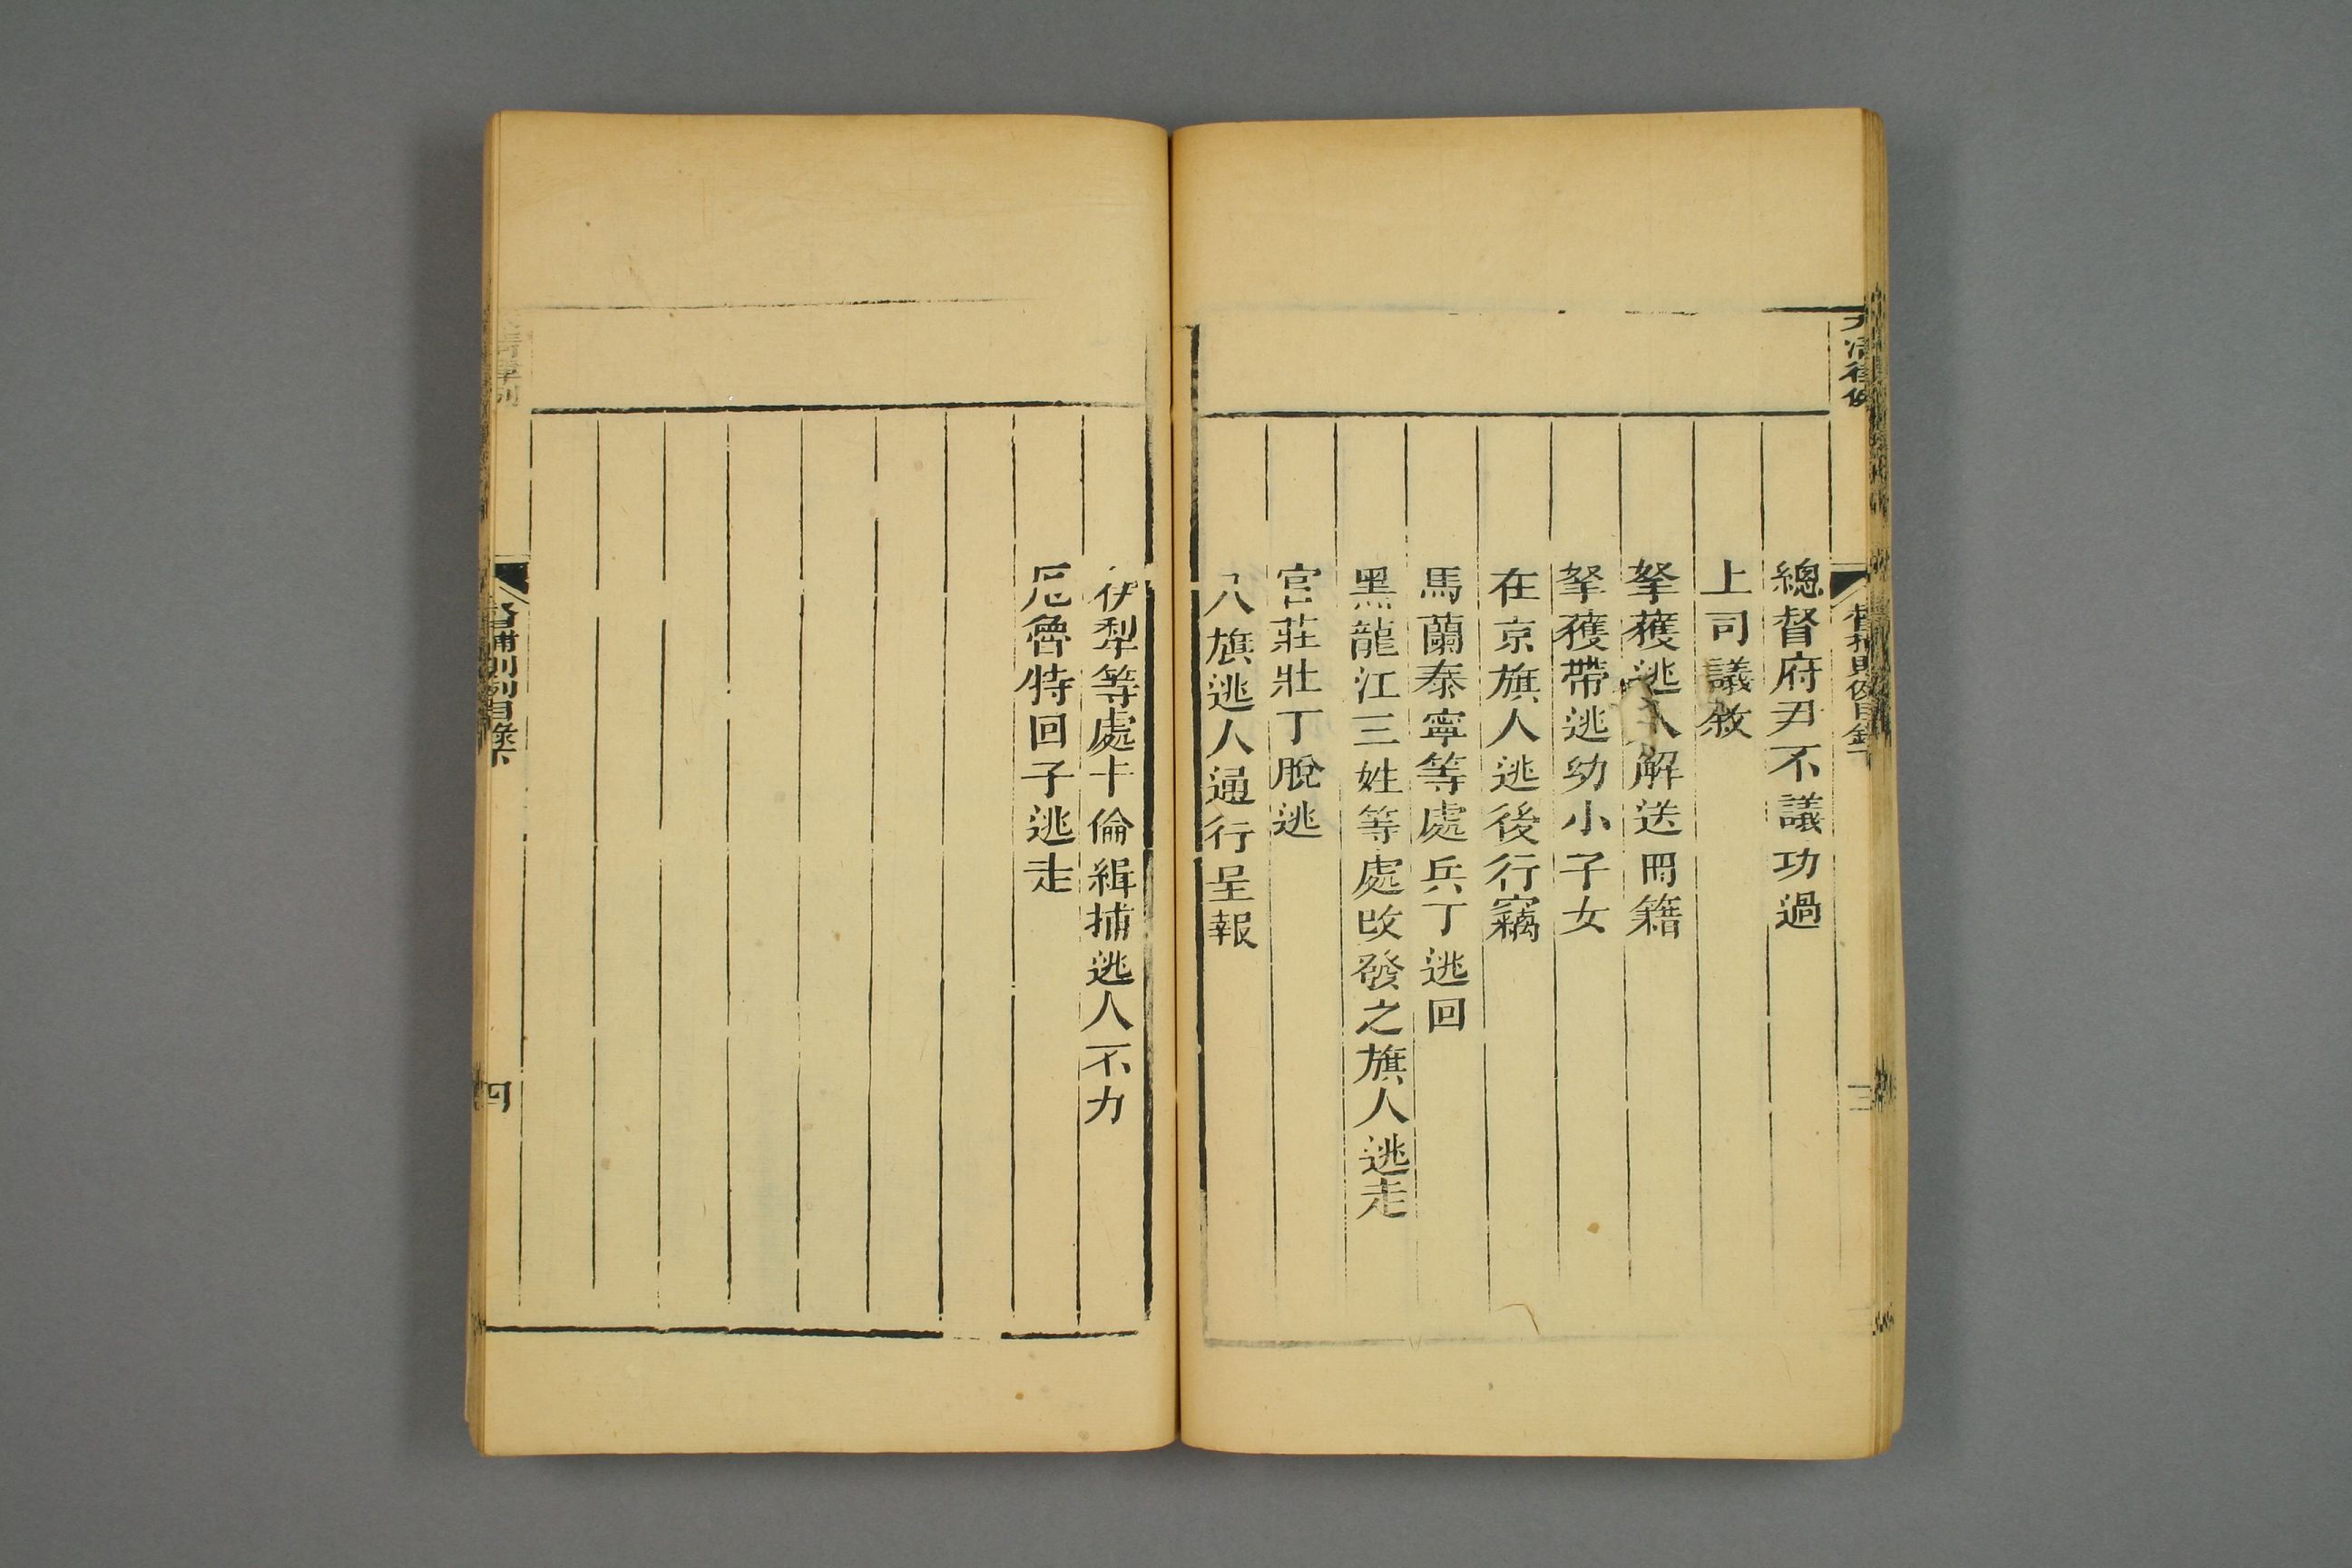 大清律例
督捕則例目錄下
三
總督府尹不議功過
上司議敘
拏獲逃人解送冊籍
拏獲帶逃幼小子女
在京旗人逃後行竊
馬蘭泰寧等處兵丁逃回
黑龍江三姓等處改發之旗人逃走
官莊壯丁脫逃
八旗逃人通行呈報
伊犁等處卡倫緝捕逃人不力
厄魯特回子逃走
督捕則例目錄下
四